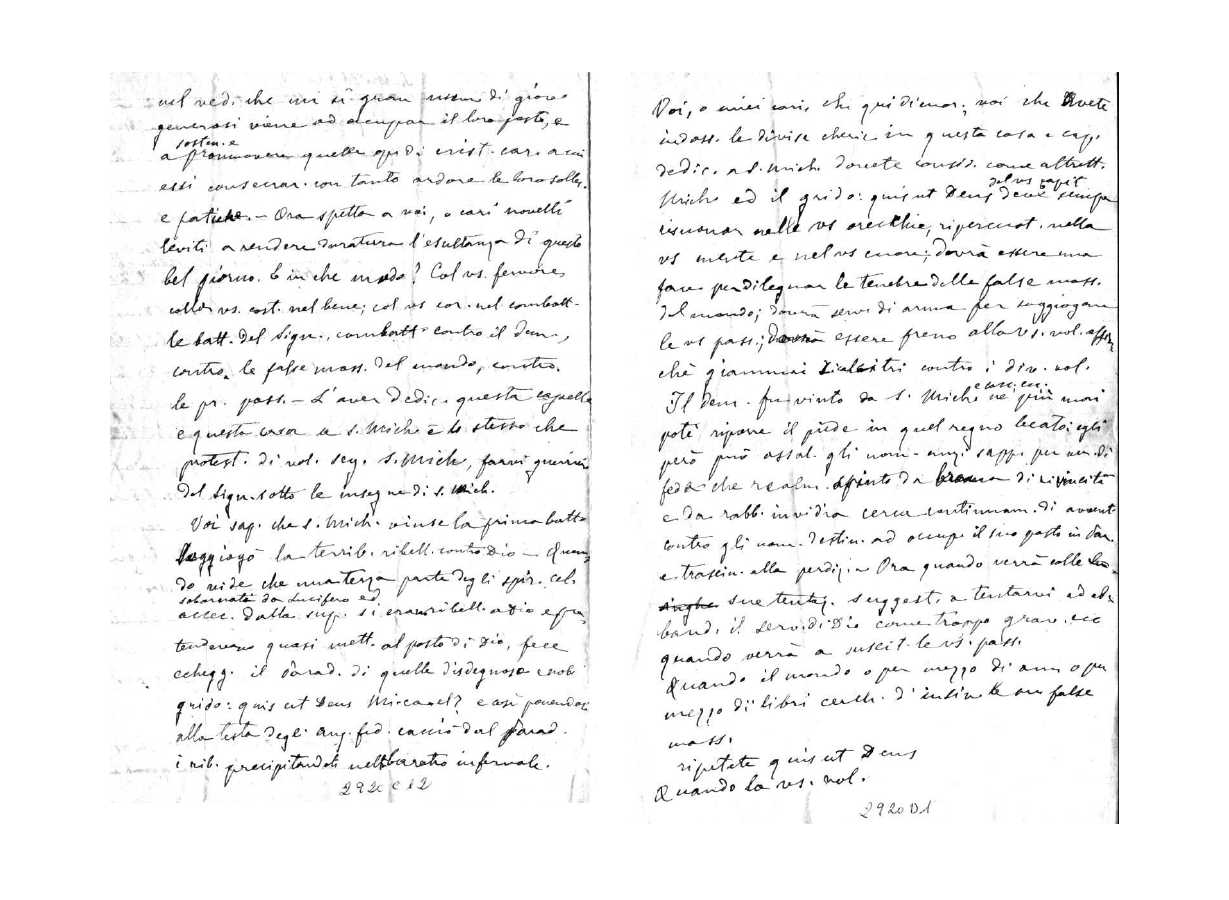 nel ved. che un sì gran num. di giov.
generosi viene ad occupar il loro posto, e
sosten. e
a promuovere quelle op. di crist. car. a cui
essi consecrar. con tanto ardore le loro solle.
e fatiche. – Ora spetta a voi, o cari novelli
leviti a rendere duratura l'esultanza di questo
bel giorno. E in che modo? Col vs. fervore,
colla vs. cost. nel bene; col vs cor. nel combatt.
le batt. del Sign., combatt. contro il dem.,
contro le false mass. del mondo, contro
le pr. pass. – L'aver dedic. questa cappella
e questa casa a S. Mich. è lo stesso che
protest. di vol. seg. S. Mich., farvi guerrieri
del Sign. sotto le insegne di S. Mich.
Voi sap. che S. Mich. vinse la prima batta
Soggiogò la terrib. ribell. contro Dio – Quan-
do vide che una terza parte degli spir. cel.
subornata da Lucifero ed
accec. dalla sup. si eran ribell. a Dio e pre-
tendevano quasi mett. al posto di Dio, fece
echegg. il Parad. di quelle disdegnose e nob.
grido: quis ut Deus Mic-ael? e così ponendosi
alla testa degli ang. fed. cacciò dal Parad.
i rib. precipitandoli nel baratro infernale.
2920 C 12
Voi, o miei cari, che qui dimor.; voi che avete
indoss. le divise cheric. in questa casa e cap.
dedic. a S. Mich. dovete consid. come altrett.
del vs capit
Mich. ed il grido: quis ut Deus deve sempre
risuonar nelle vs orecchie, ripercuot. nella
vs mente e nel vs cuore; dovrà essere una
face per dileguar le tenebre delle false mass.
del mondo; dovrà servi. di arma per soggiogare
le vs pass.; dovrà essere freno alla vs. vol. affin-
chè giammai ricalcitri contro i div. vol.
Il dem. fu vinto da S. Mich. nè più mai
potè riporre il piede in quel regno beato; egli
però può assal. gli uom. anzi sapp. per
fede che realm. spinto da brama di rivincita
e da rabb. invidia cerca continuam. di avvent.
contro gli uom. destin. ad occup. il suo posto in Par.
e trascin. alla perdiz. Ora quando verrà colle lu-
singhe sue tentaz. suggest. a tentarvi ad ab-
band. il serv. di Dio come troppo grav. ecc
quando verrà a suscit. le vs. pass.
Quando il mondo o per mezzo di am. o per
mezzo di libri cerch. d'insin. le sue false
mass.
ripetete quis ut Deus
Quando la vs. vol.
2920 D1